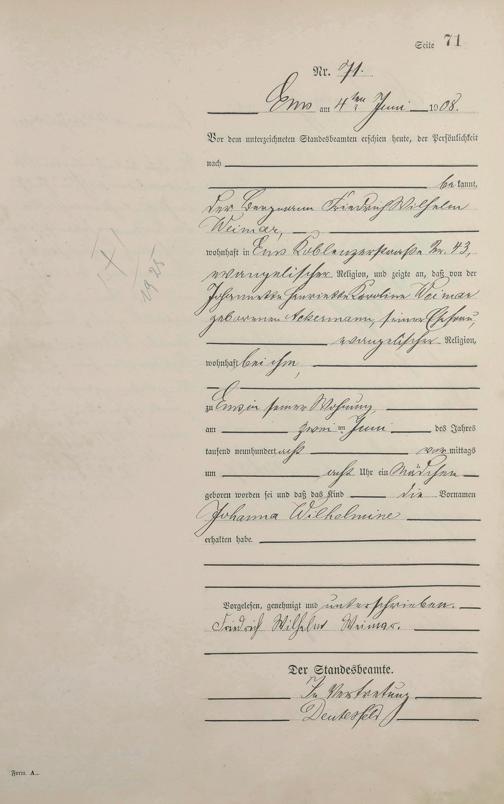 Seite 71
Nr. 71.
Ems am 4ten Juni 1908.
Vor dem unterzeichneten Standesbeamten erschien heute, der Persönlichkeit
nach
bekannt,
der Bergmann Friedrich Wilhelm
Weimar,
wohnhaft in Ems Koblenzerstraße Nr. 43,
evangelischer Religion, und zeigte an, daß von der
Johannette Henriette Karoline Weimar
geborenen Ackermann, seiner Ehefrau,
evangelischer Religion,
wohnhaft bei ihm,
zu Ems in seiner Wohnung,
am zweiten Juni des Jahres
tausend neunhundert acht vormittags
um acht Uhr ein Mädchen
geboren worden sei und daß das Kind die Vornamen
Johanna Wilhelmine
erhalten habe.
Vorgelesen, genehmigt und unterschrieben.
Friedrich Wilhelm Weimar.
Der Standesbeamte.
In Vertretung
+
1925
Form. A.